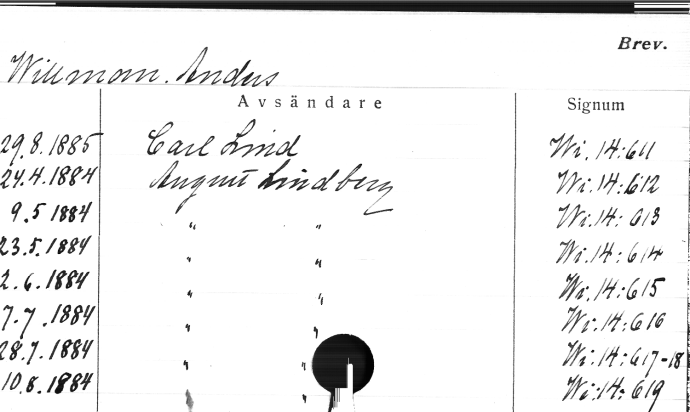 Brev.
Willman. Anders
Avsändare Signum
29.8.1885 Carl Lind Wi.14:611
24.4.1884 August Lindberg Wi.14:612
9.5 1884 " " Wi.14:613
23.5.1884 " " Wi.14:614
2.6.1884 " " Wi.14:615
7.7.1884 " " Wi.14:616
28.7.1884 " " Wi.14:617-18
10.8.1884 " " Wi.14:619